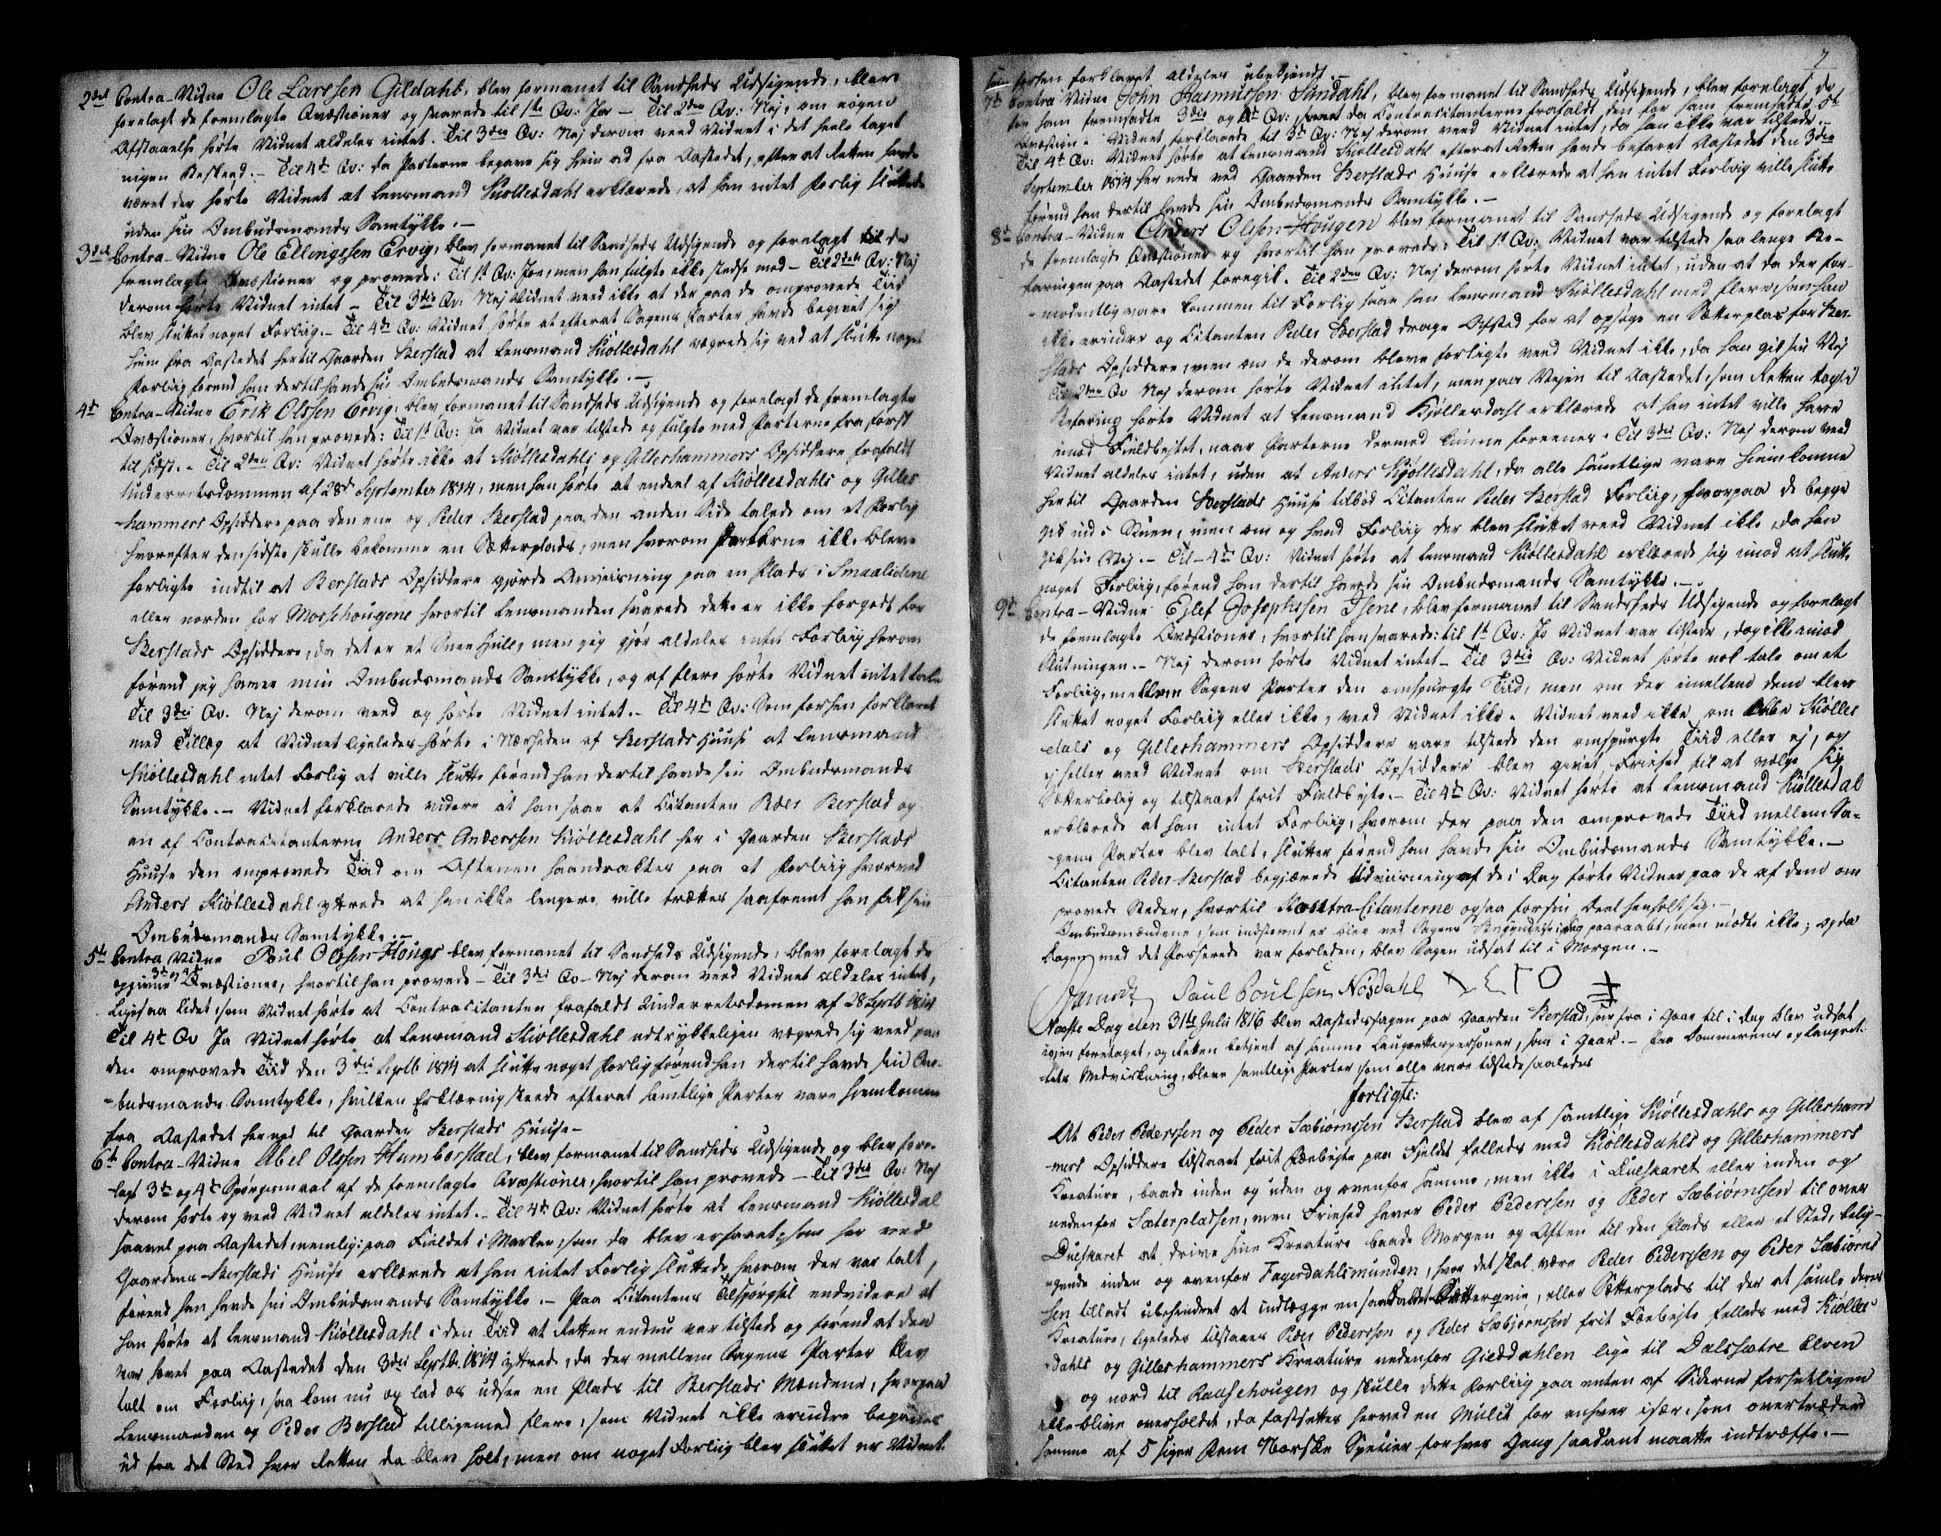 2det Contra-Vidne Ole Larssen Gildahl, blev formanet til Sandheds Udsigende, blev
forelagt de fremlagte Qvæstioner og svarede til 1ste Qv: Ja — Til 2den Qv: Nej, om nogen
Afstaaelse hørte Vidnet aldeles intet. Til 3die Qv: Nej derom veed Vidnet i det heele taget
ingen Beskeed. — Til 4de Qv: da Parterne begave sig hiem ad fra Aastedet, efter at Retten havde
været der hørte Vidnet at Lensmand Kiøllesdahl erklærede, at han intet Forlig sluttede
uden sin Ombudsmands Samtykke. —
3die Contra-Vidne Ole Ellingssen Ervig, blev formanet til Sandheds Udsigende og forelagt de
fremlagte Qvæstioner og provede: Til 1st Qv: Ja, men han fulgte ikke stedse med — Til 2den Qv: Nej
derom hørte Vidnet intet — Til 3die Qv: Nej Vidnet veed ikke at der paa de omprovede Tiid
blev sluttet noget Forliig. — Til 4t Qv: Vidnet hørte at efterat Sagens Parter havde begivet sig
hiem fra Aastedet hertil Gaarden Berstad at Lensmand Kiøllesdahl vægrede sig ved at slutte noget
Forliig førend han dertil havde sin Ombudsmands Samtykke. —
4t Contra-Vidne Erik Olssen Ervig, blev formanet til Sandheds Udsigende og forelagt de fremlagte
Qvæstioner, hvortil han provede: Til 1st Qv: Ja Vidnet var tilstede og fulgte med Parterne fra først
til sidst. — Til 2den Qv: Vidnet hørte ikke at Kiøllesdahls og Gilleshammers Opsiddere frafaldt
Underretsdommen af 28d September 1814, men han hørte at endeel af Kiøllesdahls og Gilles
hammers Opsiddere paa den ene og Peder Berstad paa den anden Side talede om et Forlig
hvorefter den sidste skulle bekomme en Sætterplads, men hvorom Parterne ikke bleve
forligte indtil at Berstads Opsiddere giorde Anviisning paa en Plads i Smaaliderne
eller norden for Morsehougene hvortil Lensmanden svarede dette er ikke forgodt for
Berstads Opsiddere, da det er et Snee Hull, men jeg giør aldeles intet Forliig herom
førend jeg haver min Ombudsmands Samtykke, og af flere hørte Vidnet intet tale
Til 3die Qv. Nej derom veed og hørte Vidnet intet. — Til 4t Qv: Som forhen forklaret
med Tillæg at Vidnet ligeledes hørte i Nærheden af Berstads Huuse at Lensmand
Kiøllesdahl intet Forlig at ville slutte førend han dertil havde sin Ombudsmands
Samtykke. — Vidnet forklarede videre at han saae at Citanten Peder Berstad og
en af Contracitanterne Anders Anderssen Kiøllesdahl her i Gaarden Berstads
Huuse den omprovede Tiid om Aftenen haandraktes paa et Forliig hvorved
Anders Kiøllesdahl yttrede at han ikke lengere ville trættes saafremt han fik sin
Ombudsmands Samtykke. —
5te Contra Vidne Poul Olssen Houge blev formanet til Sandheds Udsigende, blev forelagt de
3die og 4t
opgivne Qvæstioner, hvortil han provede — Til 3die Qv — Nej derom veed Vidnet aldeles intet,
Ligesaa lidet, som Vidnet hørte at Contracitanten frafaldt Underretsdomen af 28 Septb 1814
Til 4t Qv Ja Vidnet hørte at Lensmand Kiøllesdahl udtrykkeligen vægrede sig veed paa
den omprovede Tiid den 3die Septb 1814 at slutte noget Forlig førend han dertil havde sin Om-
budsmands Samtykke, hvilken Erklæring skeede efterat samtlige Parter vare hiemkomen
fra Aastedet herned til Gaarden Berstads Huuse —
6t Contra-Vidne Abel Olssen Humborstad, blev formanet til Sandheds Udsigende og blev fore-
lagt 3de og 4t Spørgsmaal af de fremlagte Qvæstioner, hvortil han provede — Til 3die Qv: Nej
derom hørte og veed Vidnet aldeles intet. — Til 4t Qv: Vidnet hørte at Lensmand Kiøllesdal
saavel paa Aastedet, nemlig: paa Fieldet i Marken, som da blev erfaret, som her ved
Gaardens Berstads Huuse erklærede at han intet Forlig sluttede hvorom der var talt,
førend han havde sin Ombudsmands Samtykke. — Paa Citantens Tilspørgsel endvidere at
han hørte at Lensmand Kiøllesdahl i den Tiid at Retten endnu var tilstede og førend at den
var hævet paa Aastedet den 3die Septb. 1814 yttrede, da der mellem Sagens Parter blev
talt om Forliig, saa kom nu og lad os udsee en Plads til Berstads Mændene, hvorpaa
Lensmanden og Peder Berstad tilligemed flere, som Vidnet ikke erindre begave
ud fra det Sted hvor Retten da blev holt, men om noget Forliig blev sluttet er Vidnet
7
som forhen forklaret aldeles ubekiendt. —
7t Contra Vidne John Rasmussen Sundahl, blev formanet til Sandheds Udsigende, blev forelagt de
for ham fremsadte 3die og 4t Qv: da Contracitanterne frafaldt den for ham fremsadte
Qvæstion. Vidnet forklarede til 3d Qv: Nej derom veed Vidnet intet, da han ikke var tilstede. —
Til 4t Qv: Vidnet hørte at Lensmand Kiøllesdahl efterat Retten havde befaret Aastedet den 3die
September 1814 her nede ved Gaarden Berstads Huuse erklærede at han intet Forliig ville slutte
førend han dertil havde sin Ombudsmands Samtykke. —
8d Contra-Vidne Anders Olssen Hougen blev formanet til Sandheds Udsigende og forelagt
de fremlagte Qvæstioner og hvortil han provede: Til 1st Qv: Vidnet var tilstede saa lenge Be-
faringen paa Aastedet foregik. Til 2den Qv: Nej derom hørte Vidnet intet, uden at da der for-
modentlig vare kommen til Forlig saae han Lensmand Kiøllesdahl med flere, som han
ikke erindre og Citanten Peder Berstad drage Afsted for at opsøge en Sætterplas for Ber-
stads Opsiddere, men om de derom bleve forligte veed Vidnet ikke, da han gik sin Vej
Til 2den Qv Nej derom hørte Vidnet intet, men paa Vejen til Aastedet, som Retten tog til
Befaring hørte Vidnet at Lensmand Kjøllesdahl erklærede at han intet ville have
imod Fieldbeitet, naar Parterne dermed kunne foreenes. Til 3die Qv: Nej derom veed
Vidnet aldeles intet, uden at Anders Kjøllesdahl, da alle samtlige vare hiemkomne
hertil Gaarden Berstads Huuse tilbød Citanten Peder Berstad Forliig, hvorpaa de begge
gik ind i Stuen, men om og hvad Forliig der blev sluttet veed Vidnet ikke, da han
gik sin Vej. — Til 4t Qv: Vidnet hørte at Lensmand Kiøllesdahl erklærede sig imod at slutte
noget Forliig, førend han dertil havde sin Ombudsmands Samtykke. —
9d Contra-Vidne Ejlef Josephssen Thene, blev formanet til Sandheds Udsigende og forelagt
de fremlagte Qvæstioner, hvortil han svarede: til 1t Qv: Jo Vidnet var tilstede, dog ikke imod
Slutningen. — Nej derom hørte Vidnet intet — Til 3die Qv: Vidnet hørte nok tale om et
Forliig, mellem Sagens Parter den omspurgte Tiid, men om der imellem dem blev
sluttet noget Forliig eller ikke, veed Vidnet ikke. Vidnet veed ikke om Kiølles
dals og Gilleshammers Opsiddere vare tilstede den omspurgte Tiid eller ej, og
ej heller veed Vidnet om Berstads Opsiddere blev givet Friehed til at vælge sig
Sætterbolig og tilstaaet frit Fieldbeyte. — Til 4t Qv: Vidnet hørte at Lensmand Kiøllesdal
erklærede at han intet Forliig, hvorom der paa den omprovede Tiid mellem Sa-
gens Parter blev talt, slutter førend han havde sin Ombudsmands Samtykke. —
Citanten Peder Berstad begjærede Udviisning af de i Dag førte Vidner paa de af dem om
provede Steder, hvortil Kontra-Citanterne ogsaa forsin Deel henholdt sig. —
Ombudsmændene, som indstevnt er blev ved Sagens Begyndelse i Dag paaraabt, men mødte ikke; og da
Dagen med det Passerede var forleden, blev Sagen udsat til i Morgen. —
Paul Poulsen Nosdahl
Næste Dag den 31te Julii 1816 blev Aastedssagen paa Gaarden Berstad, der fra i Gaar til i Dag blev udsat
igjen foretaget, og Retten betjent af samme Laugrettespersoner, som i Gaar. — Ved Dommerens og Laugret-
tets Medvirkning, bleve samtlige Parter som alle vare tilstede saaledes
forligte:
At Peder Pederssen og Peder Sæbiørnssen Berstad blev af samtlige Kiøllesdahls og Gillesham
mers Opsiddere tilstaaet frit Fæebeite paa Fjeldet felleds med Kiøllesdahls og Gilleshammers
Kreature, baade inden og uden og ovenfor samme, men ikke i Dueskaret eller inden og
nedenfor Sæterpladsen, men Friehed haver Peder Pederssen og Peder Sæbiørnssen til over
Dueskaret at drive sine Kreature baade Morgen og Aften til den Plads eller et Sted, belig-
gende inden og ovenfor Fagerdahlsmunden, hvor det skal være Peder Pederssen og Peder Sæbiørns
sen tilladt ubehindret at indlægge en saakaldet Sætterqvie, eller Sætterplads til der at samle deres
Kreature, ligeledes tilstaaes Peder Pederssen og Peder Sæbjørnssen frit Fæebeite felleds med Kiølles-
dahls og Gilleshammers Kreature nedenfor Gieddahlen lige til Dalssætre Elven
og nord til Raasehougen og skulle dette Forliig paa enten af Siderne forsetligen
ikke blive overholdet, da fastsettes herved en Mulct for enhver især, som overtræder
samme af 5 siger Fem Norske Specier for hver Gang saadant maatte indtræffe. —